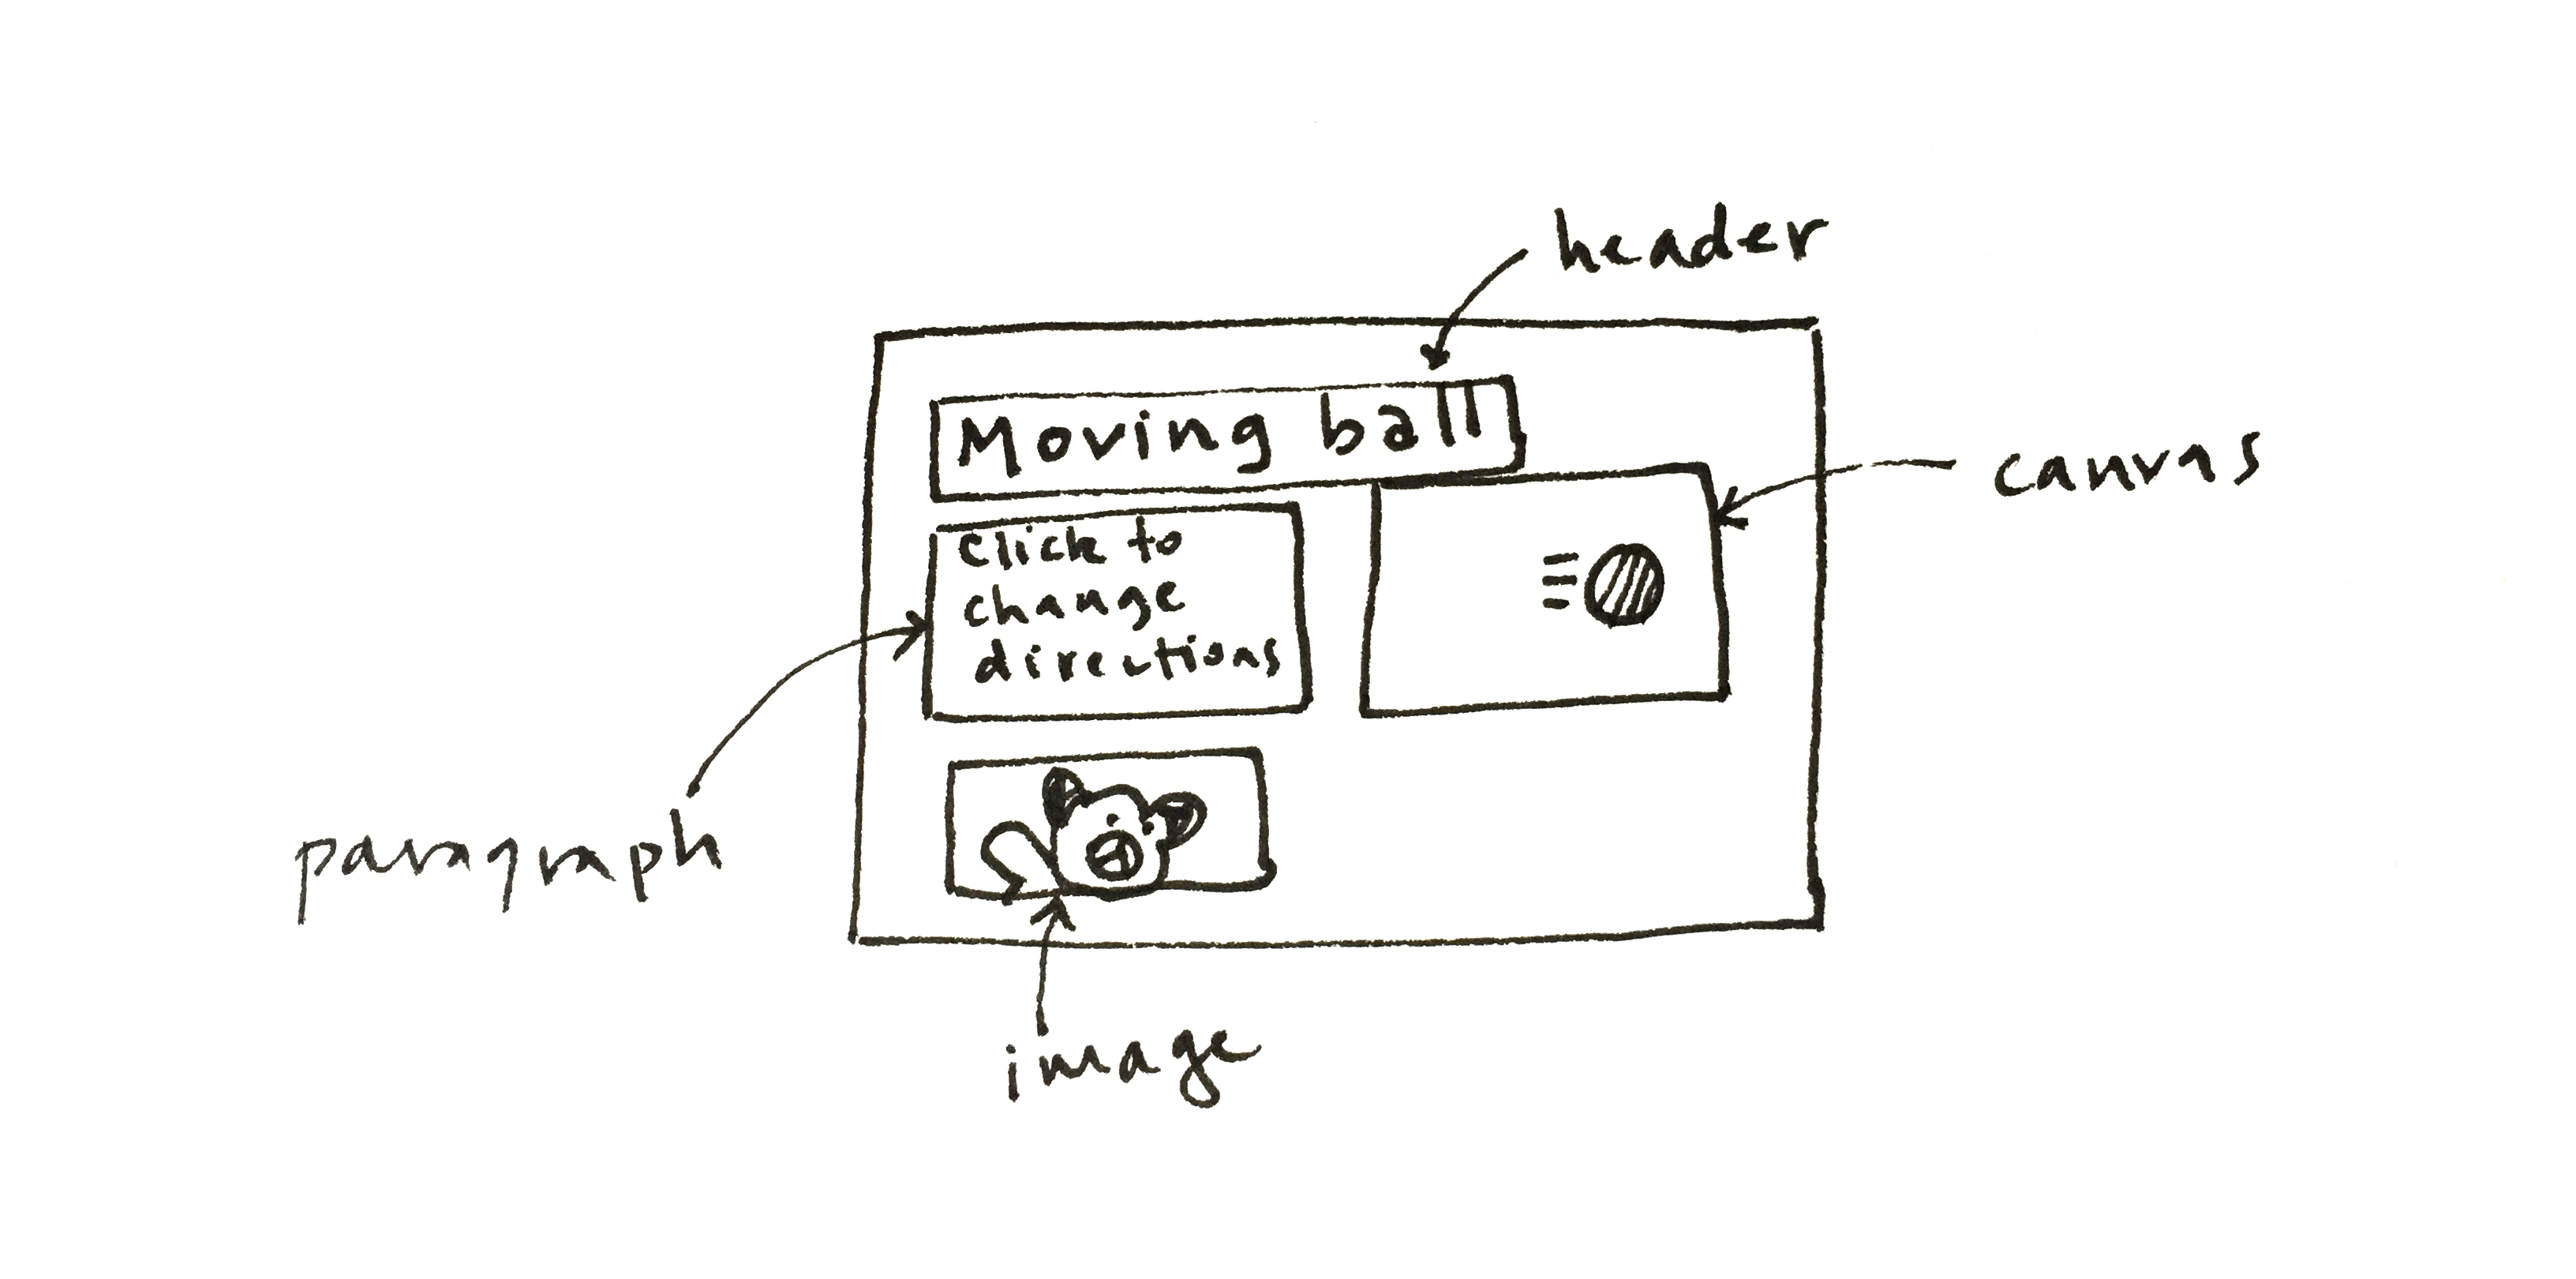 header
Moving ball
canvas
Click to
change
directions
paragraph
image